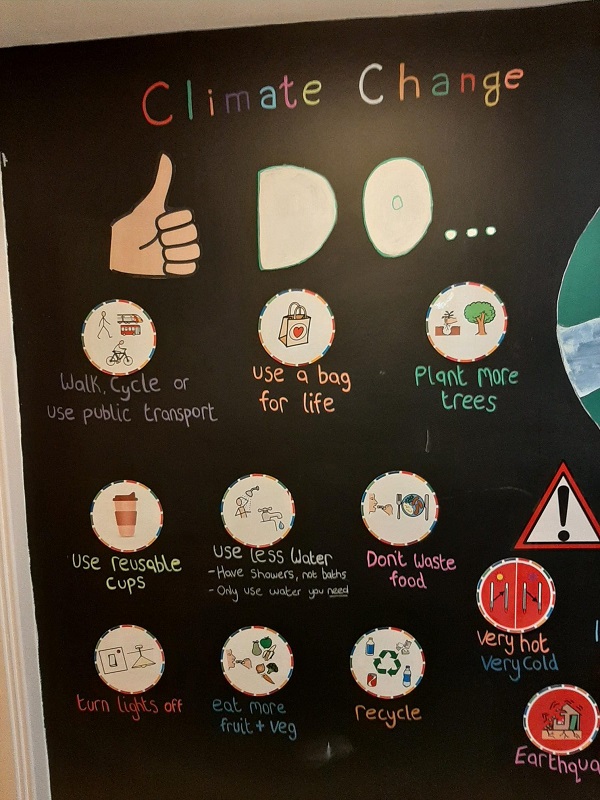 Climate Change
DO...
Walk, Cycle or
use public transport
use a bag
for life
Plant More
trees
use reusable
cups
use less Water
- Have showers, not baths
- Only use water you need
Don't waste
food
turn lights off
eat more
fruit + veg
recycle
!
very hot
very cold